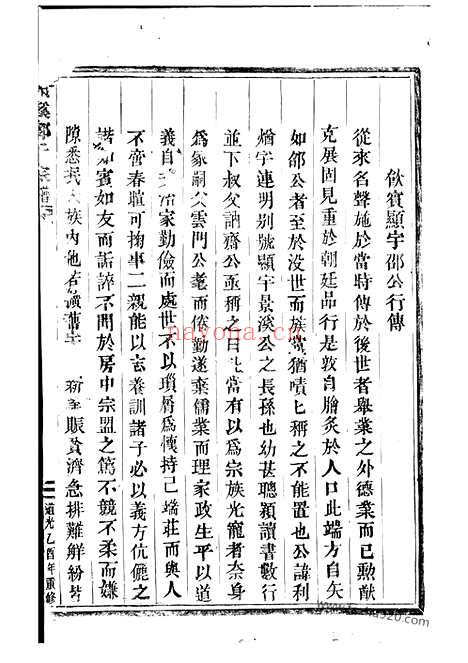 飲賓顯宇邵公行傳
從來名聲施於當時傳於後世者舉業之外德業而已勲猷
克展固見重於朝廷品行是敦自膾炙於人口此端方自矢
如邵公者至於没世而族黨猶嘖匕稱之不能置也公諱利
字連明别號顯宇景溪公之長孫也幼甚聰穎讀書數行
並下叔父訥齋公亟稱之曰此當有以爲宗族光寵者奈身
爲冡嗣父雲門公耄而倦勤遂棄儒業而理家政生平以道
義自 治家勤儉而處世不以瑣屑爲懷持己端莊而與人
不啻春暄可掬事二親能以志養訓諸子必以義方伉儷之
諧如賓如友而詬誶不聞於房中宗盟之篤不競不柔而嫌
隙悉泯 族内 賑貧濟急排難解紛皆
宗譜
道光乙酉年重修
nayona.cn